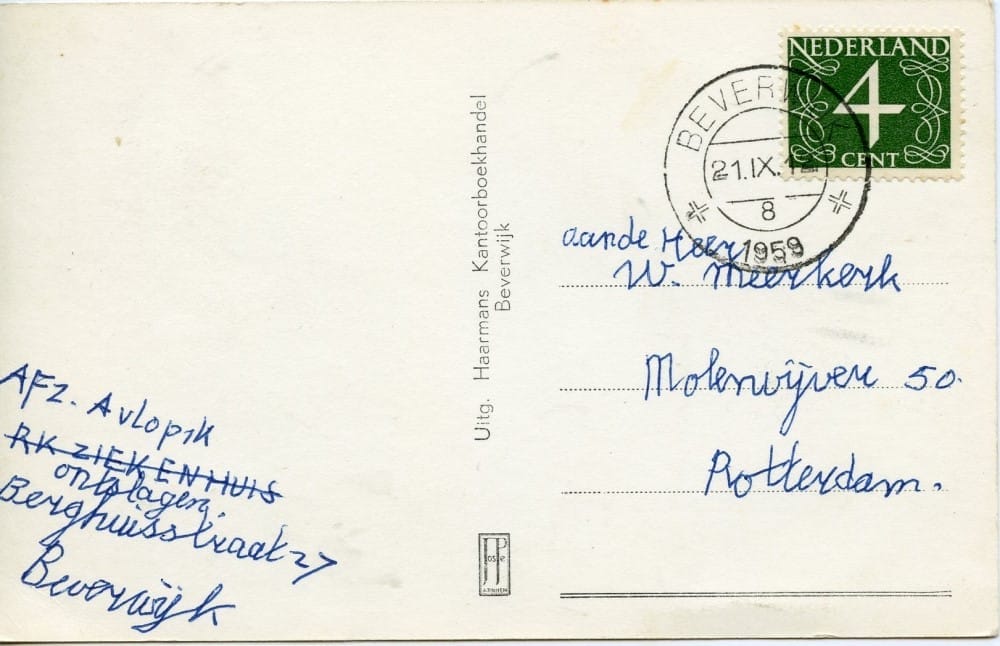 NEDERLAND
4
CENT
BEVERWIJK
21.IX.12
8
1959
Uitg. Haarmans Kantoorboekhandel
Beverwijk
aande Heer
W. Meerkerk
Molenvijver 50.
Rotterdam.
AFZ. Avlopik
RK ZIEKENHUIS
ontslagen.
Berghuisstraat 27
Beverwijk
JosPe
ARNHEM